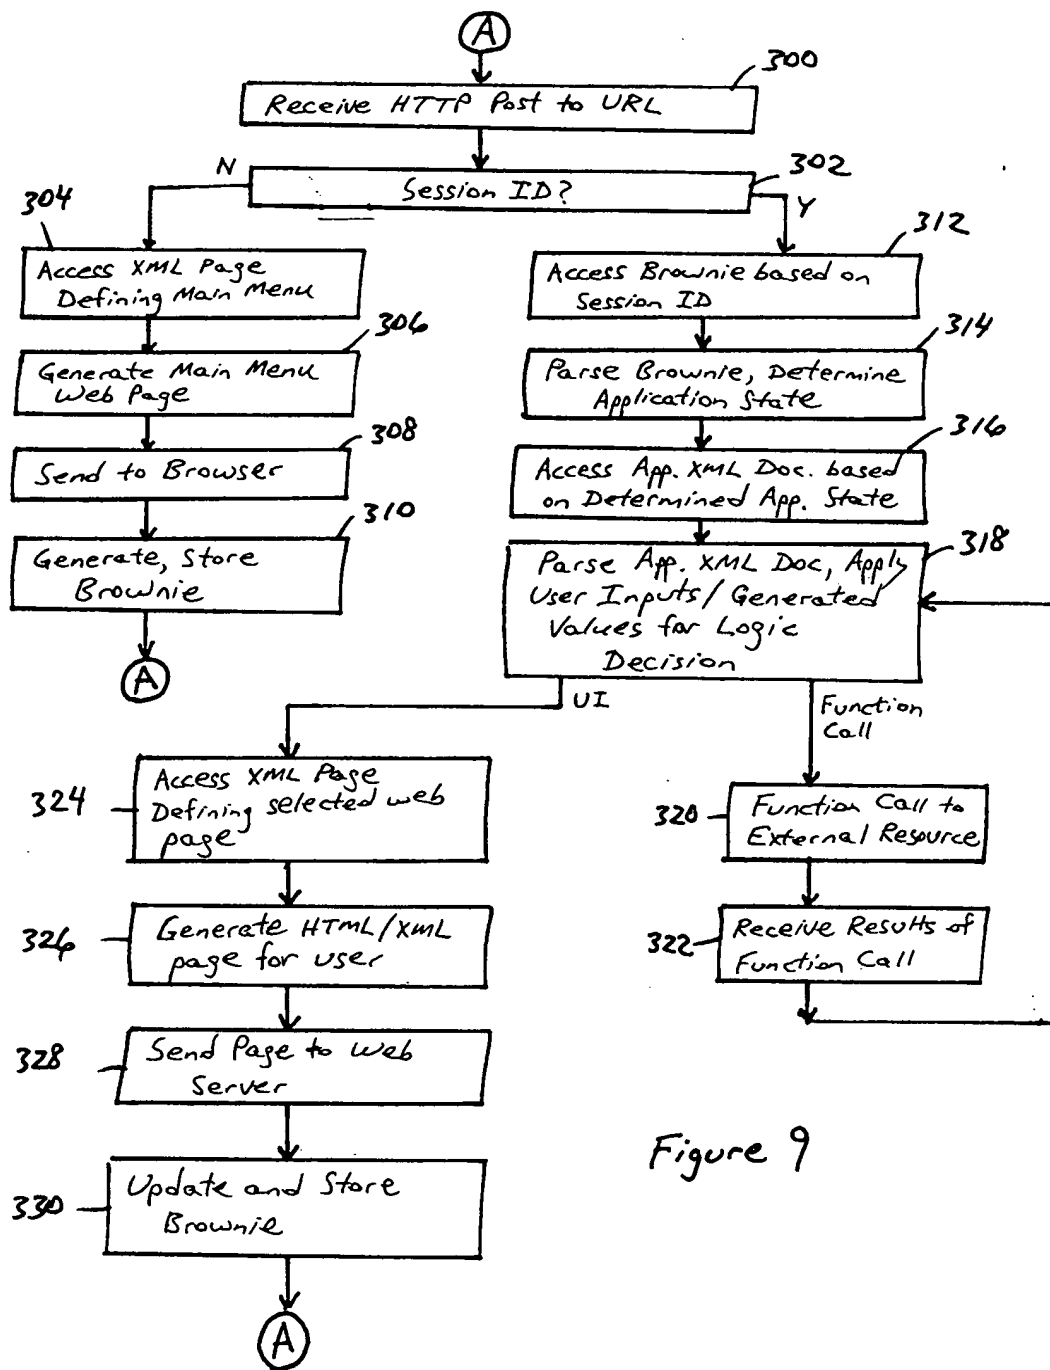 A
300
Receive HTTP Post to URL
302
N
Session ID?
Y
304
Access XML Page
Defining Main Menu
306
Generate Main Menu
Web Page
308
Send to Browser
310
Generate, Store
Brownie
A
312
Access Brownie based on
Session ID
314
Parse Brownie, Determine
Application State
316
Access App. XML Doc. based
on Determined App. State
318
Parse App. XML Doc, Apply
User Inputs/Generated
Values for Logic
Decision
UI
Function
Call
324
Access XML Page
Defining selected web
page
326
Generate HTML/XML
page for user
328
Send Page to Web
Server
330
Update and Store
Brownie
A
320
Function Call to
External Resource
322
Receive Results of
Function Call
Figure 9